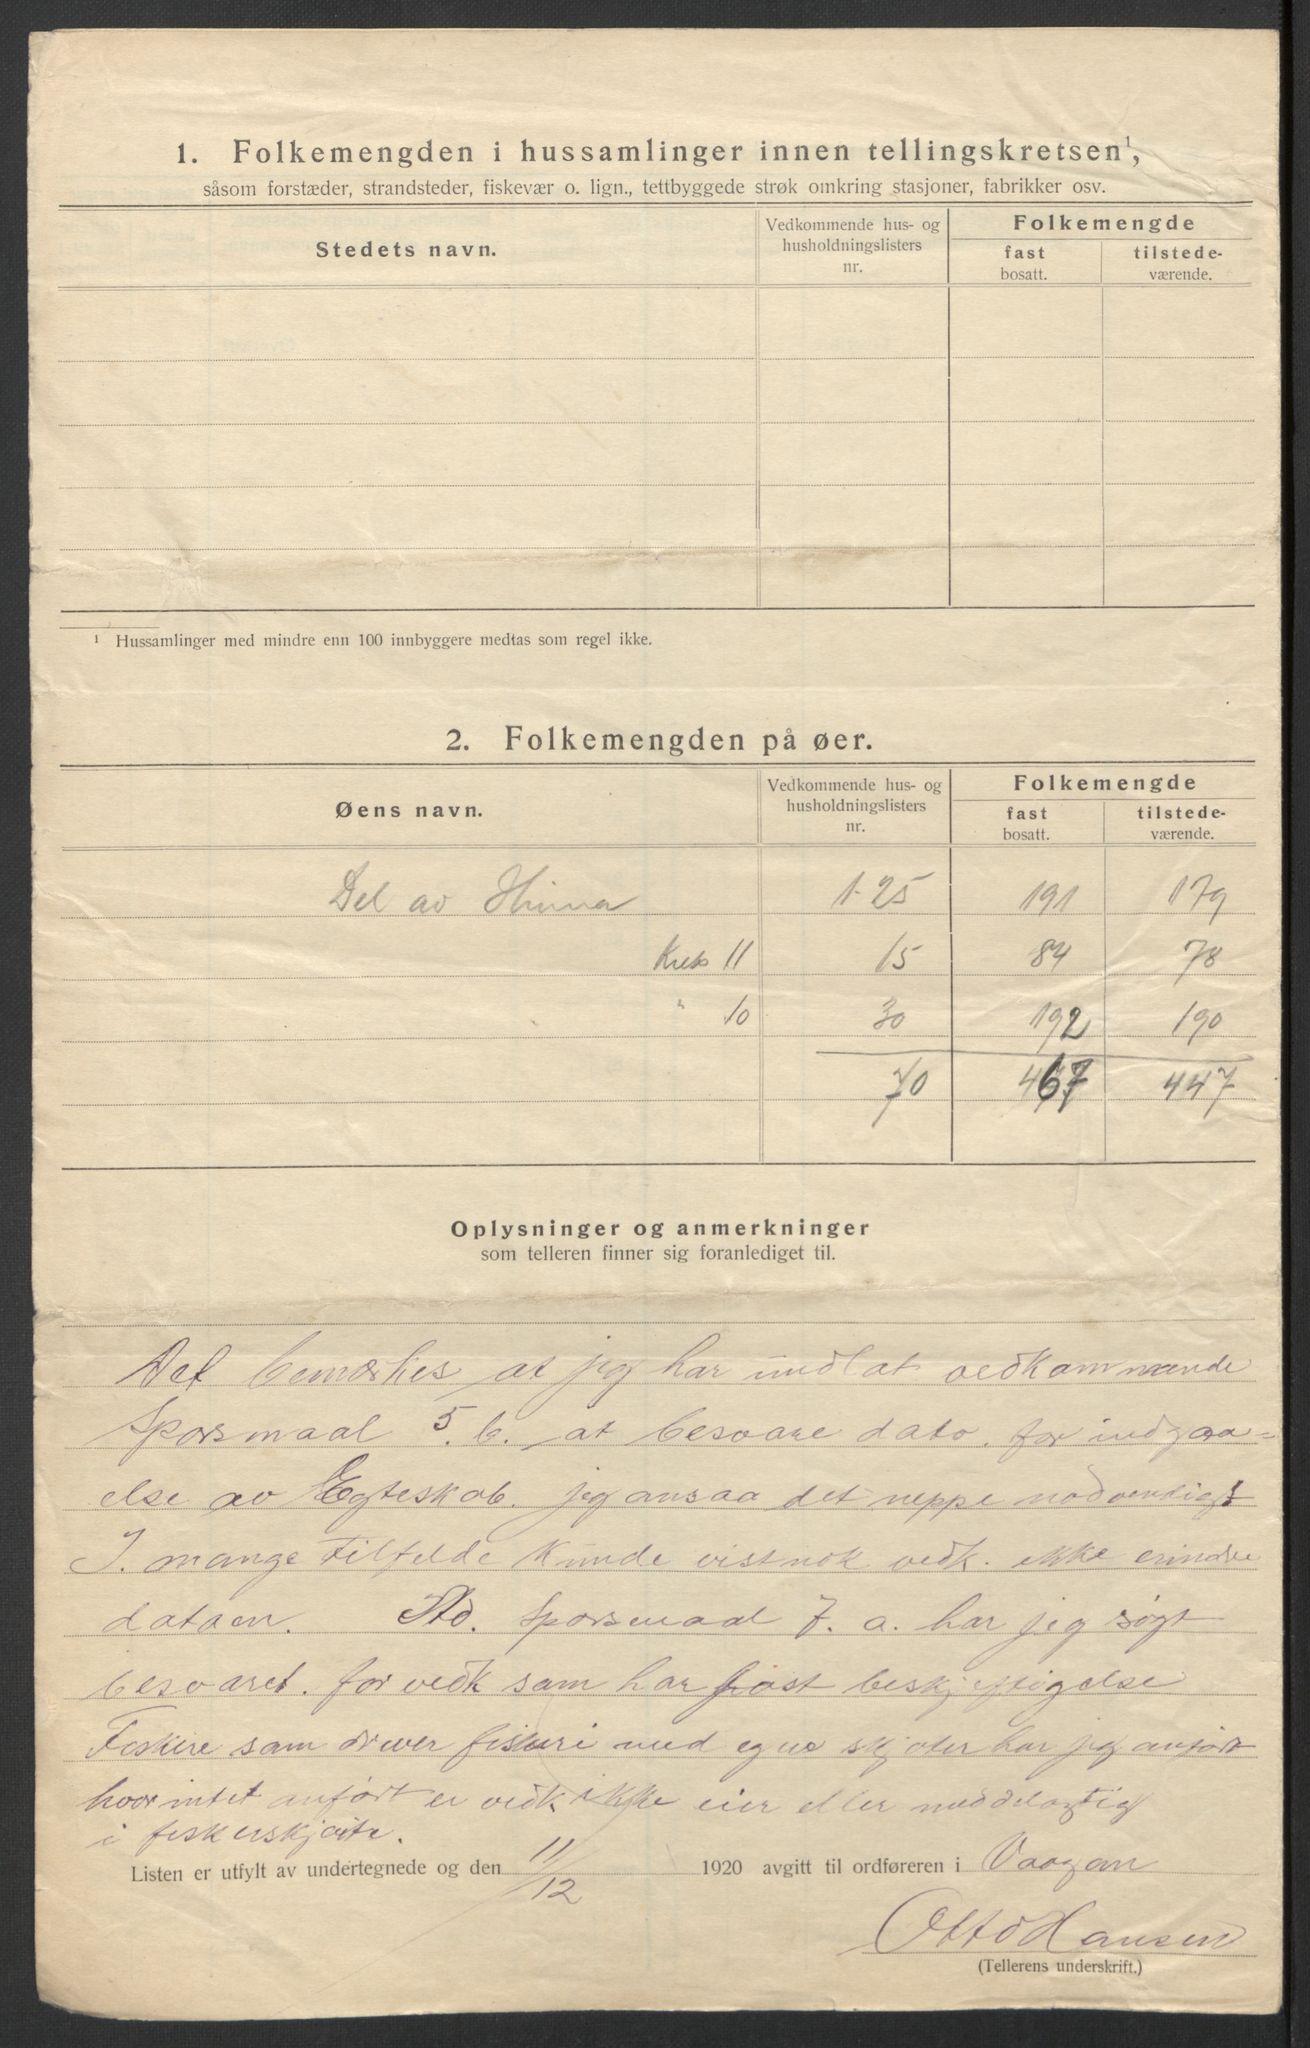 1. Folkemengden i hussamlinger innen tellingskretsen¹,
såsom forstæder, strandsteder, fiskevær o. lign., tettbyggede strøk omkring stasjoner, fabrikker osv.
Stedets navn.
Vedkommende hus- og
husholdningslisters
nr.
Folkemengde
fast
bosatt.
tilstede-
værende.
¹ Hussamlinger med mindre enn 100 innbyggere medtas som regel ikke.
2. Folkemengden på øer.
Øens navn.
Vedkommende hus- og
husholdningslisters
nr.
Folkemengde
fast
bosatt.
tilstede-
værende.
Del av Hinna 1-25 191 179
Krets 11 15 84 78
" 10 30 192 190
70 467 447
Oplysninger og anmerkninger
som telleren finner sig foranlediget til.
Det bemærkes at jeg har undlat vedkommende
Spørsmaal 5. b. at besvare dato. for indgaa-
else av Egteskab. jeg ansaa det neppe nødvendigt
I. mange tilfelde kunde vistnok vedk. ikke erindre
datoen. Ad. Spørsmaal 7. a. har jeg søgt
besvaret. for vedk som har fast beskjeftigelse
Fiskere som driver fiskeri med egne skjøter har jeg anført
hvor intet anført er vedk ikke eier eller meddelagtig
i fiskerskjøite.
Listen er utfylt av undertegnede og den 11/12 1920 avgitt til ordføreren i Vaagan
Otto Hansen
(Tellerens underskrift.)